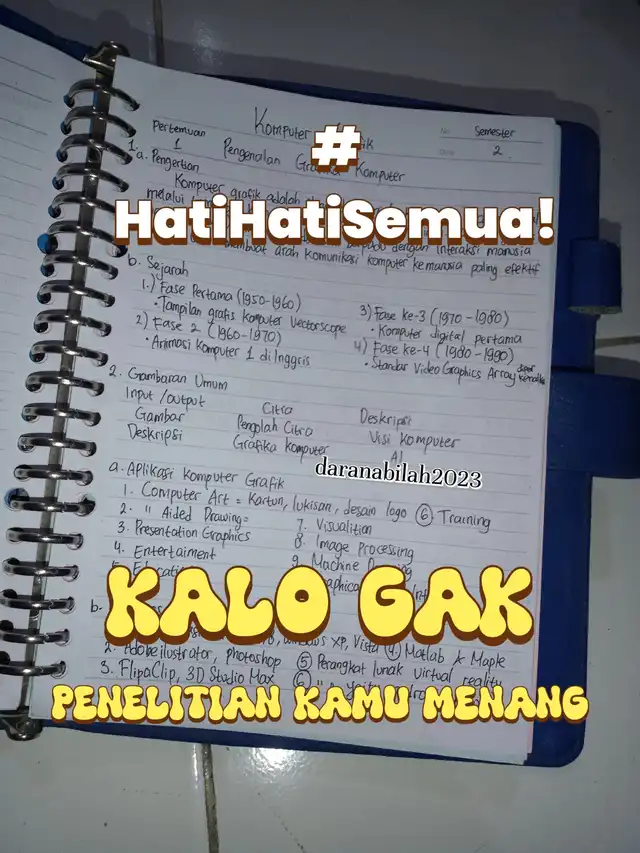 Komputer
No
Semester
Pertemuan
1
2
#
1.
Pengenalan
Komputer
a. Pengertian
Komputer grafik adalah
melalui
HatiHatiSemua!
dengan interaksi manusia
membuat arah komunikasi komputer ke manusia paling efektif
b. Sejarah
1.) Fase Pertama (1950-1960)
• Tampilan grafis komputer vectorscope
2) Fase 2 (1960-1970)
• Animasi komputer 1 di Inggris
3) Fase ke-3 (1970-1980)
• Komputer digital pertama
4) Fase ke-4 (1980-1990)
• Standar Video Graphics Array
2. Gambaran Umum
Input /output Citra Deskripsi
Gambar Pengolah Citra Visi Komputer
Deskripsi Grafika komputer AI
daranabilah2023
a. Aplikasi Komputer Grafik
1. Computer Art = Kartun, lukisan, desain logo 6) Training
2. " Aided Drawing= 7. Visualition
3. Presentation Graphics 8. Image Processing
4. Entertaiment 9. Machine
KALO GAK
b.
XP, Vista 4.) Matlab & Maple
2. Adobe ilustrator, photoshop 5) Perangkat lunak virtual reality
3. FlipaClip, 3D Studio Max 6)
PENELITIAN KAMU MENANG